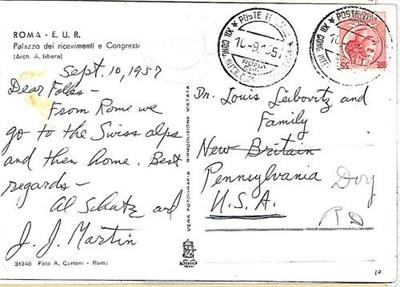 ROMA - E. U. R.
Palazzo dei ricevimenti e Congressi
(Arch. A. Libera)
Sept. 10, 1957
Dear Folks -
From Rome we
go to the Swiss alps
and then home. Best
regards -
Al Schatz and
J. J. Martin
31348 Foto A. Cartoni - Roma
VERA FOTOGRAFIA RIPRODUZIONE VIETATA
POSTE
16-9
ROMA
Dr. Louis Leibovitz and
Family
New Britain
Pennsylvania
U.S.A.
10